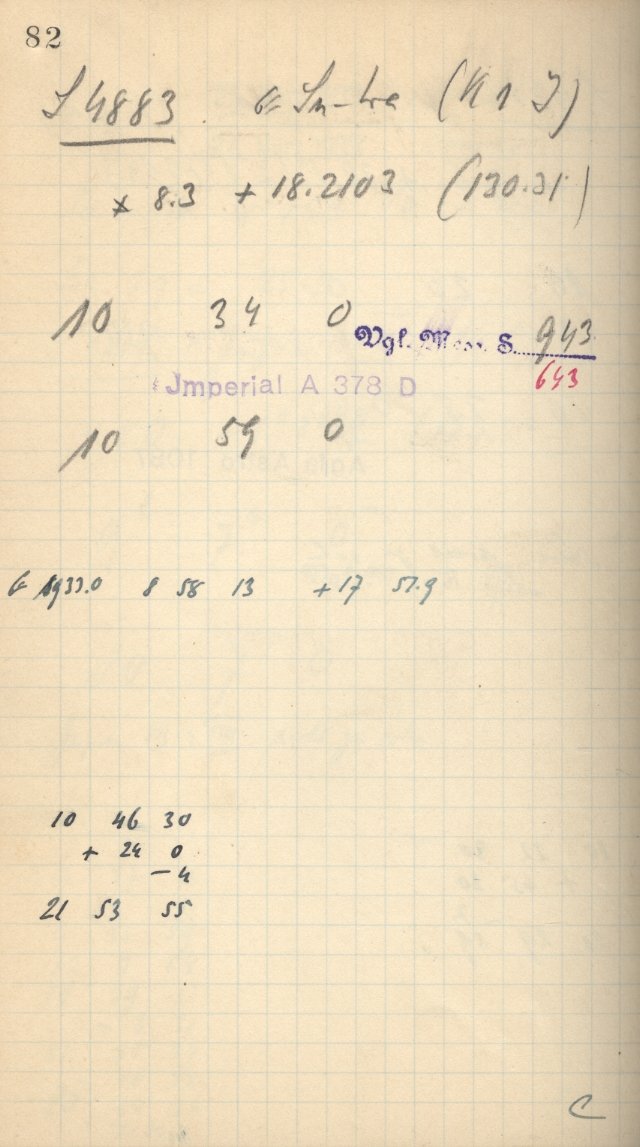 82
S 4883 (K 1 J)
× 8.3 + 18.2103 (130.31)
10 34 0
Vgl. Mess. S. 943
Jmperial A 378 D 643
10 59 0
1933.0 8 58 13 + 17 57.9
10 46 30
+ 24 0
- 4
21 53 55
C